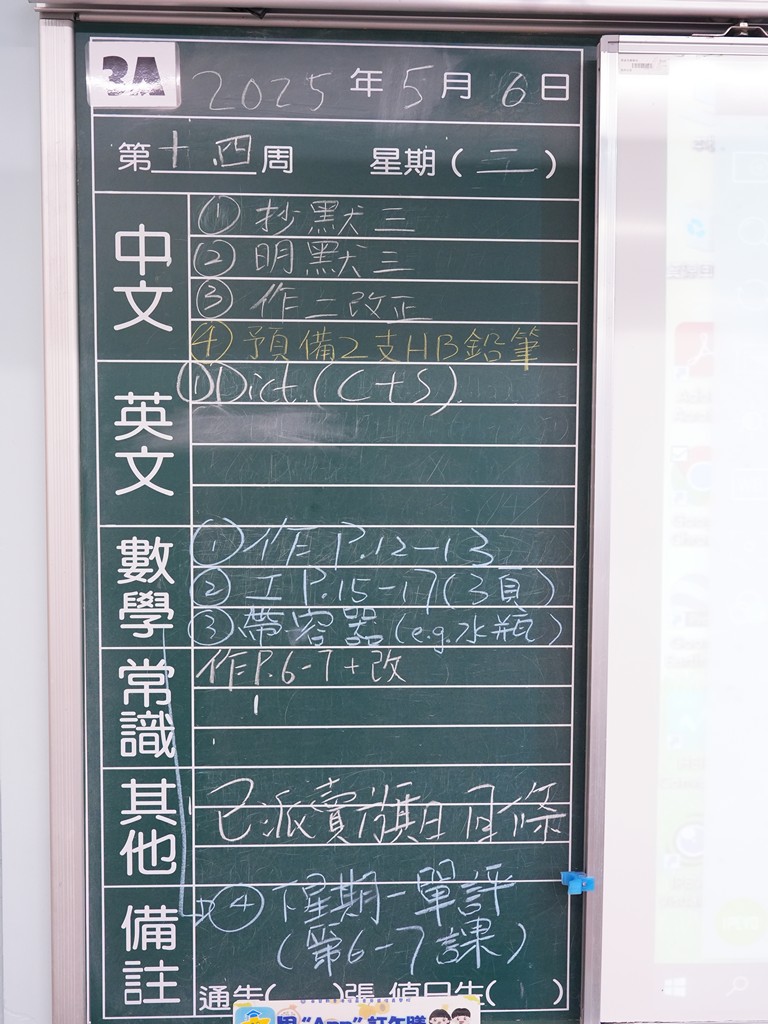 3A 2025年5月6日
第十四周 星期(二)
中文
①抄默三
②明默三
③作二改正
④預備2支HB鉛筆
英文
①Dict.(C+S)
數學
①作P.12-13
②工P.15-17(3頁)
③帶容器(e.g.水瓶)
常識
作P.6-7+改
其他
已派賣旗日回條
備註
④下星期一單評
(第6-7課)
通告( )張 值日生( )
用"App"訂午膳